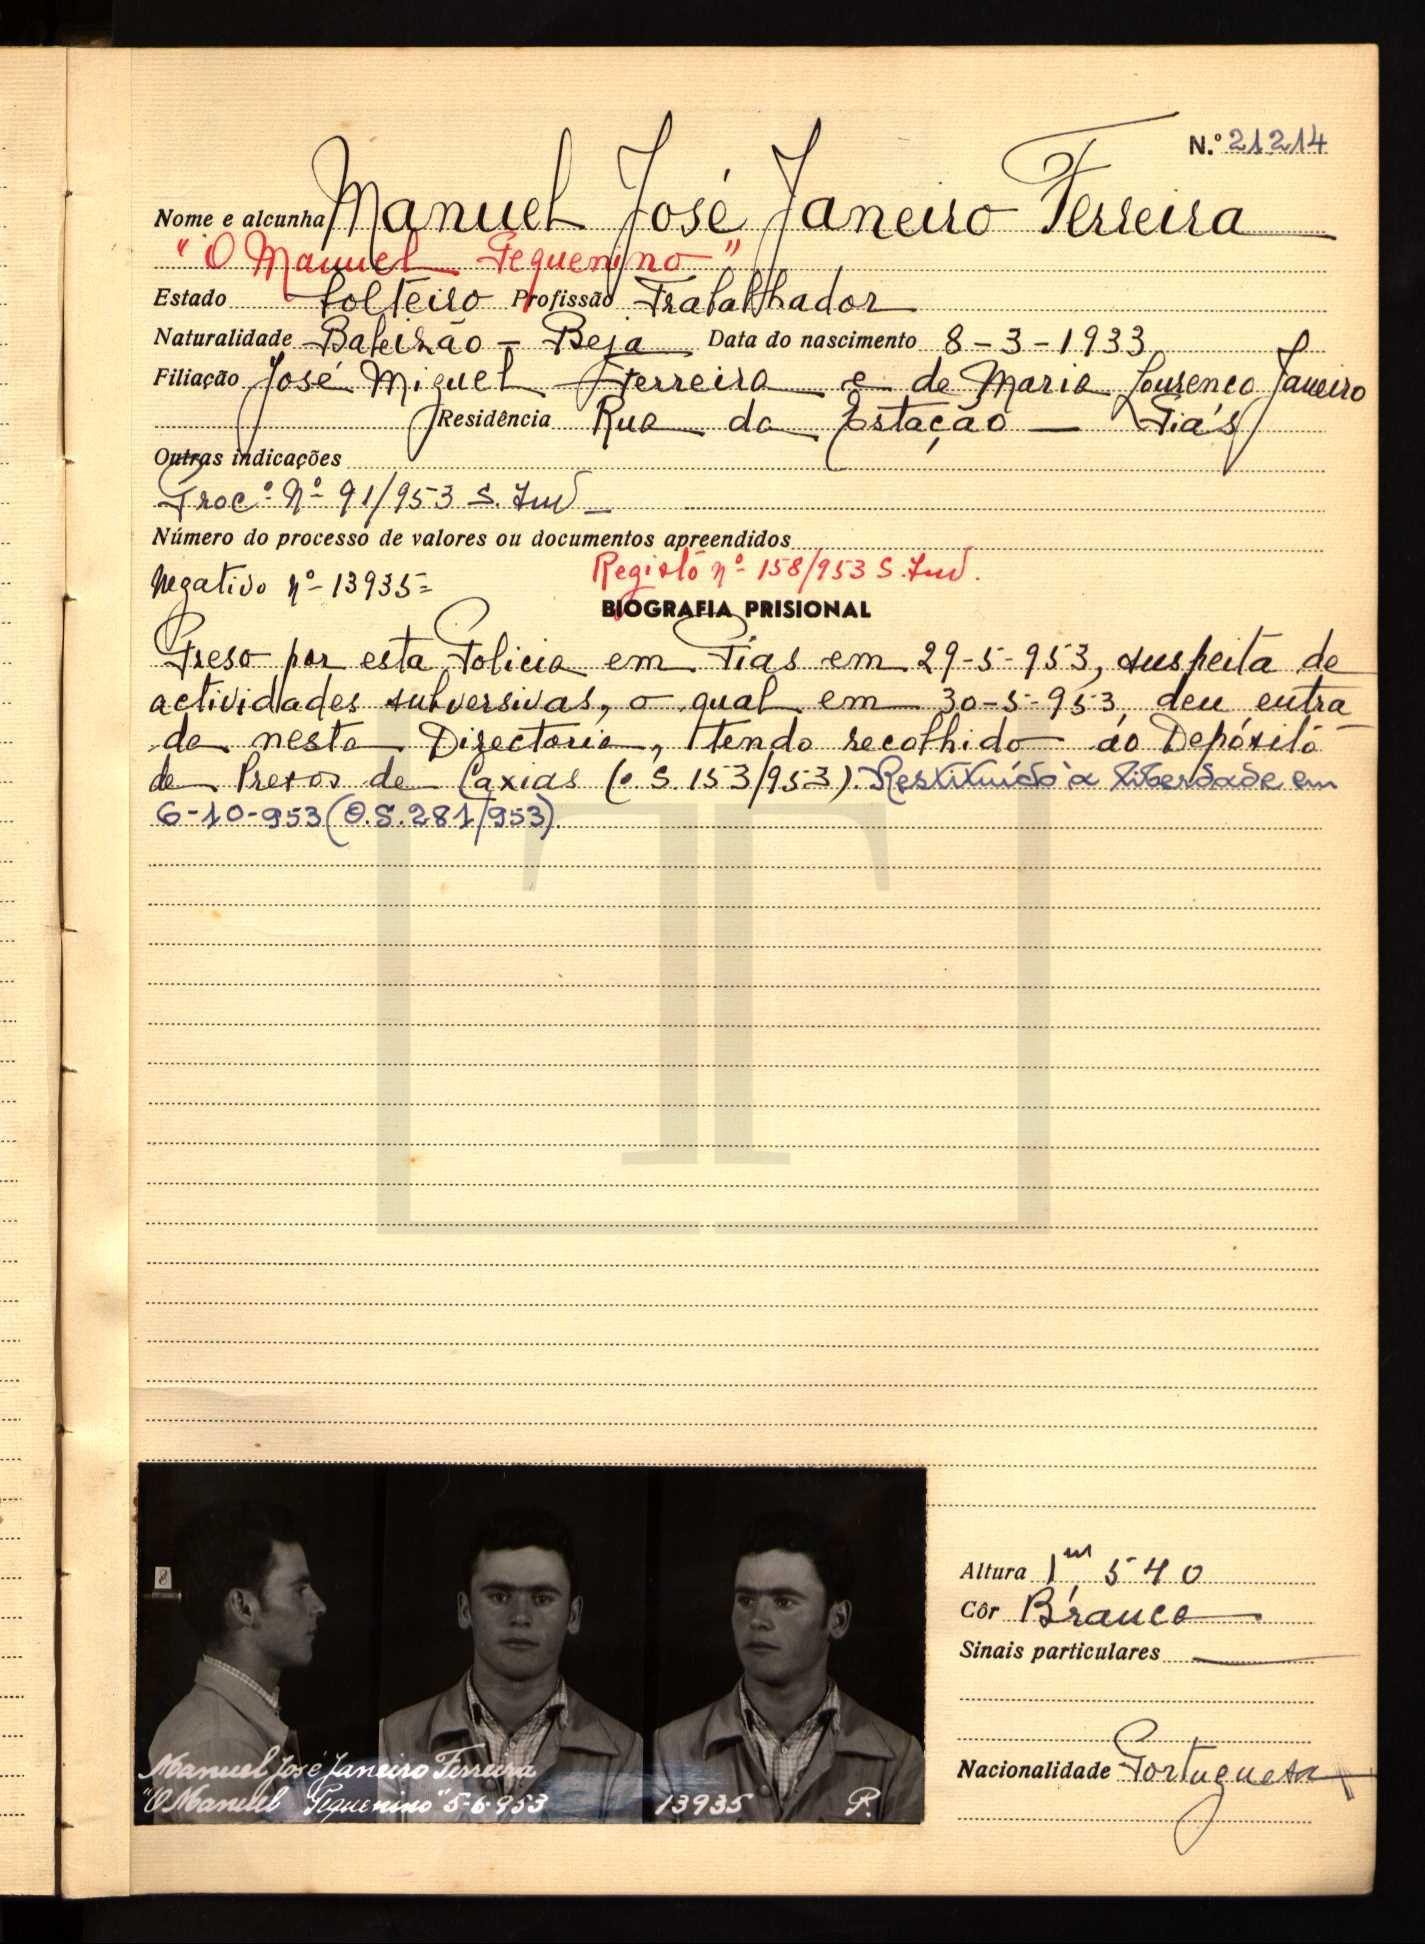 N.º 21214
Nome e alcunha Manuel José Janeiro Ferreira
"O Manuel Pequenino"
Estado Solteiro Profissão Trabalhador
Naturalidade Baleizão - Beja Data do nascimento 8-3-1933
Filiação José Miguel Ferreira e de Maria Lourenco Janeiro
Residência Rua da Estação - Pias
Outras indicações
Proc.º Nº 91/953 S. Ind
Número do processo de valores ou documentos apreendidos
Registo nº 158/953 S. Ind.
Negativo nº 13935=
BIOGRAFIA PRISIONAL
Preso por esta Policia em Pias em 29-5-953, suspeita de
actividades subversivas, o qual em 30-5-953, deu entra
da nesta Directoria, tendo recolhido ao Depósito
de Presos de Caxias (O.S. 153/953). Restituído à liberdade em
6-10-953 (O.S. 281/953).
8
Manuel José Janeiro Ferreira
"O Manuel Pequenino" 5-6-953 13935 P.
Altura 1m, 540
Côr Branca
Sinais particulares
Nacionalidade Portuguesa